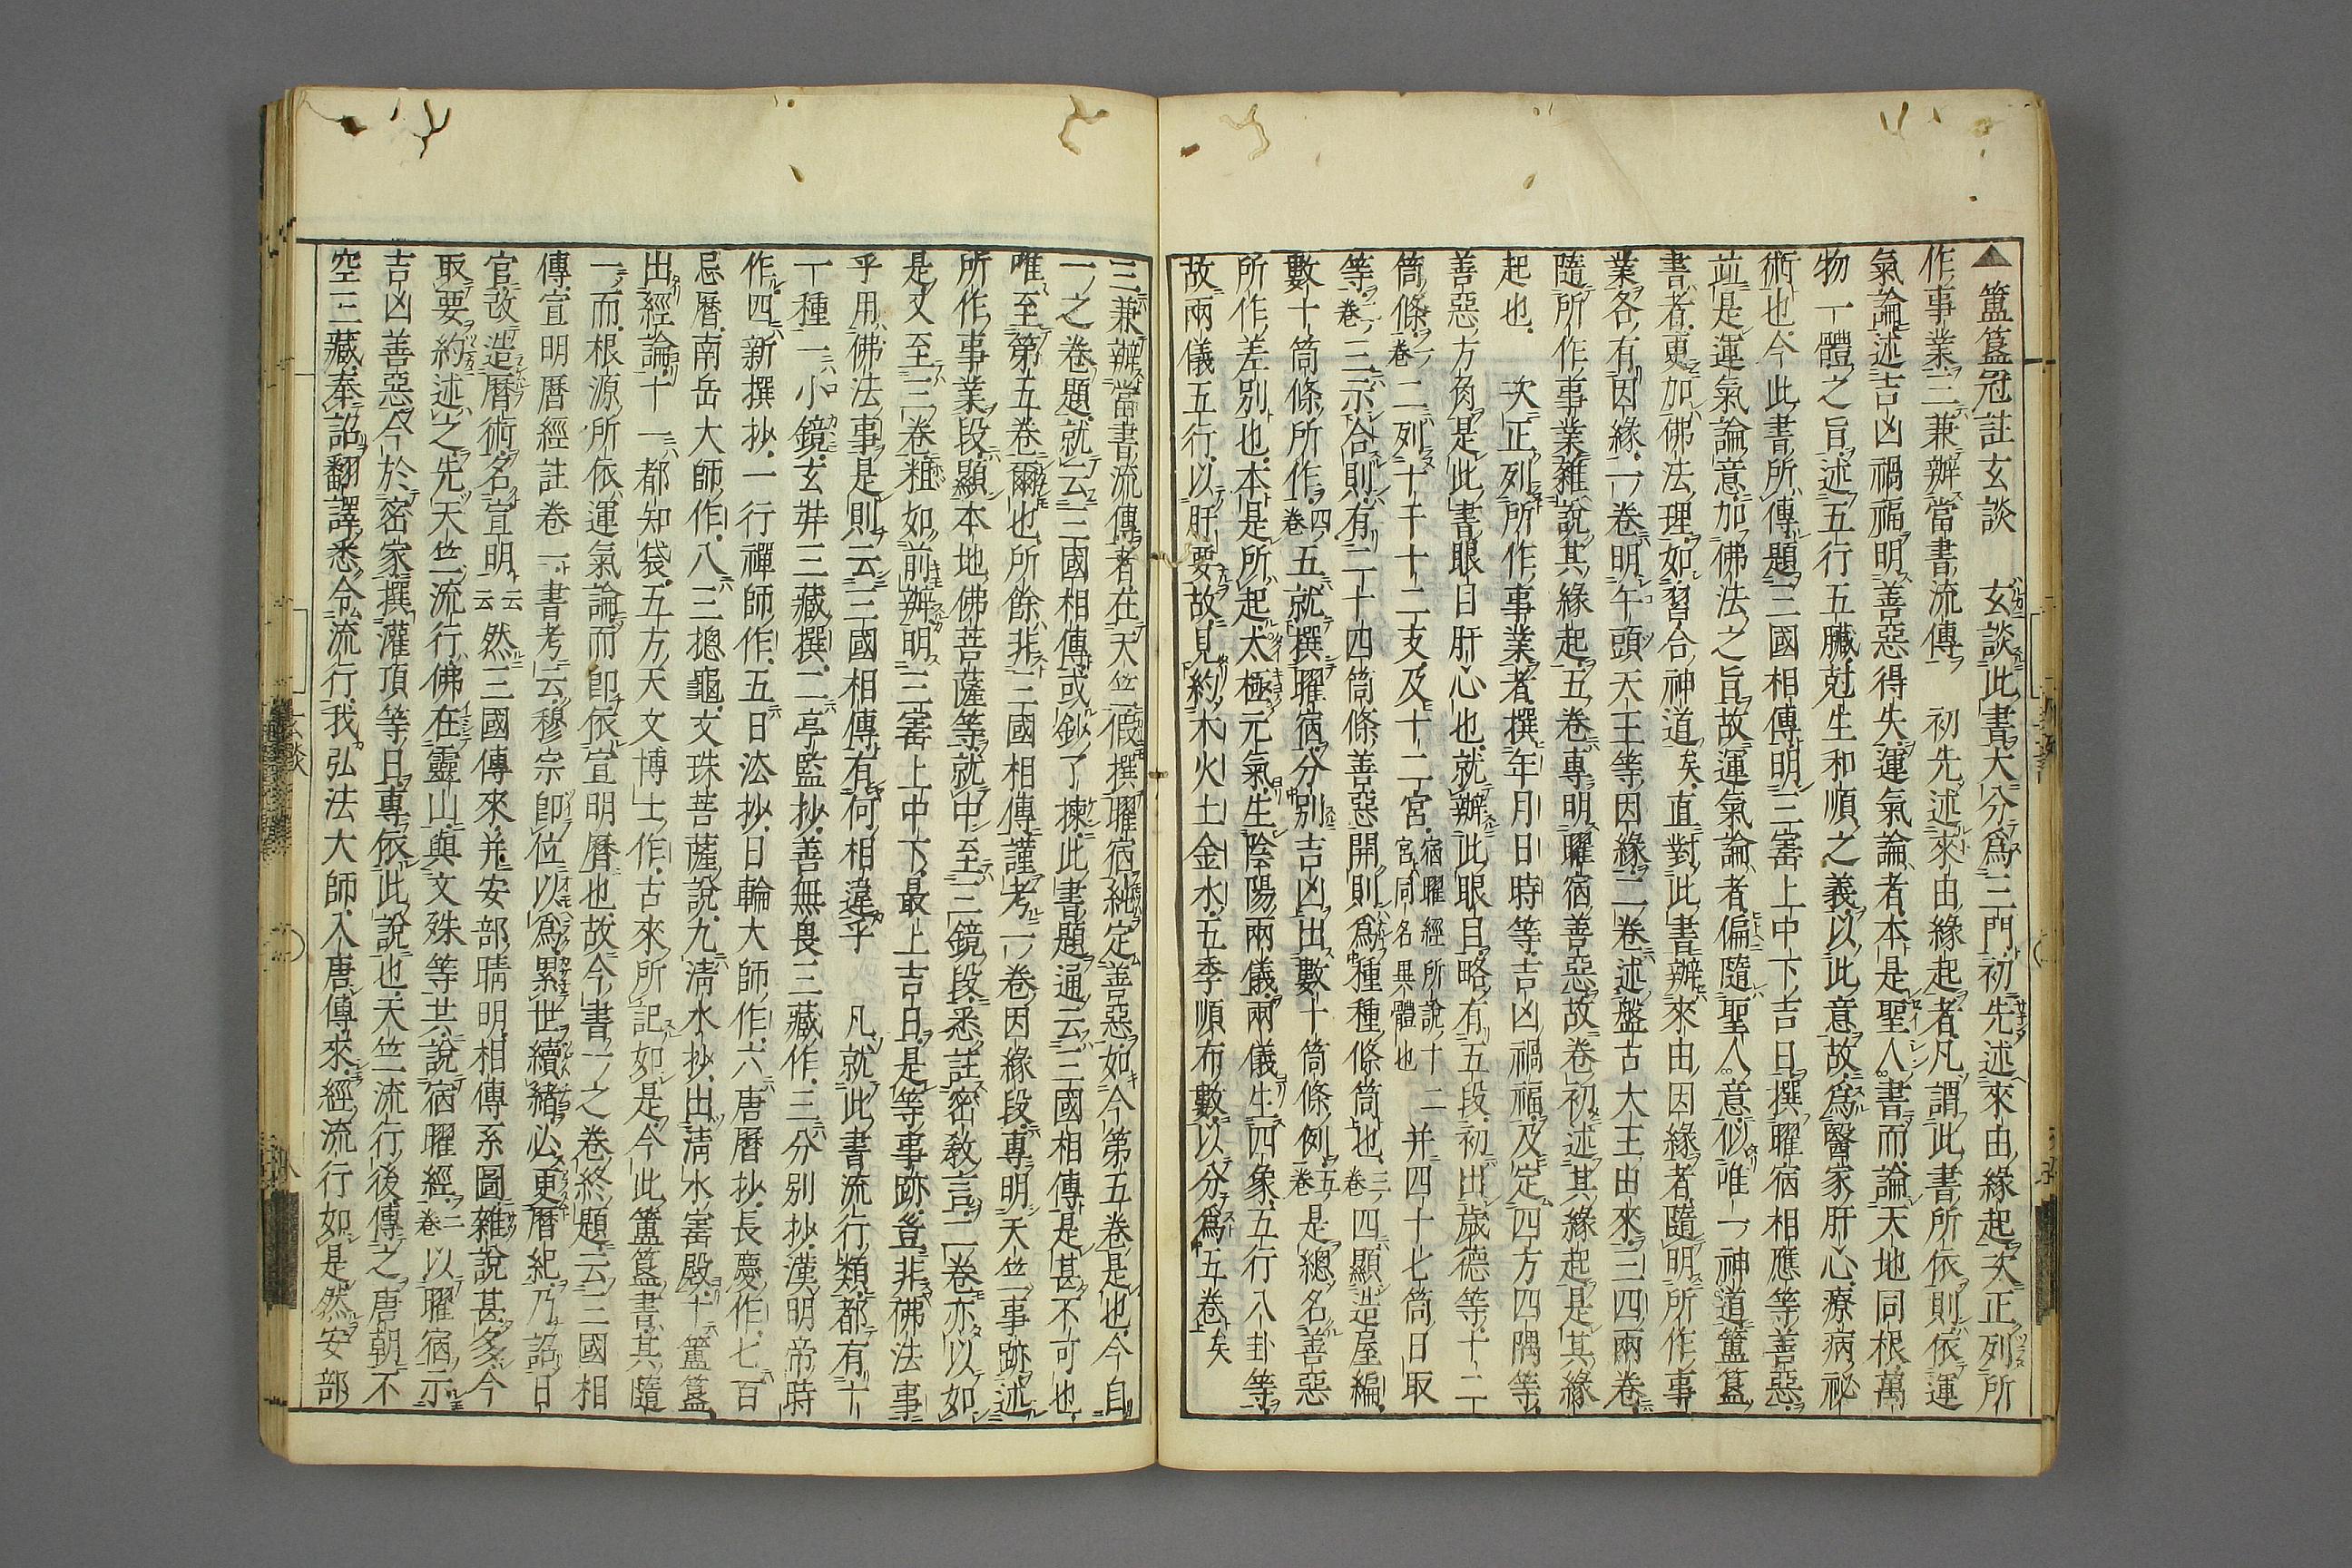 ▲簠簋冠註玄談　玄談此書大分爲三門初先述來由緣起次正列所
作事業三兼辦當書流傳　初先述來由緣起者凡謂此書所依則依運
氣論述吉凶禍福明善惡得失運氣論者本是聖人書而論天地同根萬
物一體之旨述五行五臟尅生和順之義以此意故爲醫家肝心療病祕
術也今此書所傳題三國相傳明三審上中下吉日撰曜宿相應等善惡
並是運氣論意加佛法之旨故運氣論者偏隨聖人意似唯一神道簠簋
書者更加佛法理如習合神道矣直對此書辦來由因緣者隨明所作事
業各有因緣一卷明午頭天王等因緣二卷述盤古大王由來三四兩卷
隨所作事業雜說其緣起五卷專明曜宿善惡故卷初述其緣起是其緣
起也　次正列所作事業者撰年月日時等吉凶禍福及定四方四隅等
善惡方角是此書眼目肝心也就辦此眼目略有五段初出歲德等十二
箇條一卷二列十干十二支及十二宮宿曜經所說十二宮同名異體也并四十七箇日取
等二卷三示合則有二十四箇條善惡開則爲種種條箇也三卷四顯造屋編
數十箇條所作四卷五就撰曜宿分別吉凶出數十箇條例五卷是總名善惡
所作差別也本是所起太極元氣生陰陽兩儀兩儀生四象五行八卦等
故兩儀五行以肝要故見約木火土金水五季順布數以分爲五卷矣
三兼辦當書流傳者在天竺假撰曜宿純定善惡如今第五卷是也今自
一之卷題就云三國相傳或鈔了揀此書題通云三國相傳是甚不可也
唯至第五卷爾也所餘非三國相傳謹考一卷因緣段專明天竺事跡述
所作事業段顯本地佛菩薩等就中至三鏡段悉註密教言二卷亦以如
是又至三卷粗如前辦明三審上中下最上吉日是等事跡豈非佛法事
乎用佛法事是則云三國相傳有何相違乎　凡就此書流行類都有十
一種一小鏡玄弉三藏撰二亭監抄善無畏三藏作三分別抄漢明帝時
作四新撰抄一行禪師作五日法抄日輪大師作六唐曆抄長慶作七百
忌曆南岳大師作八三摠龜文珠菩薩說九淸水抄出淸水審殿十簠簋
出經論十一都知袋五方天文博士作古來所記如是今此簠簋書其隨
一而根源所依運氣論而卽依宣明曆也故今書一之卷終題云三國相
傳宣明曆經註卷一書考云穆宗卽位以爲累世續緒必更曆紀乃詔日
官改造曆術名宣明云然三國傳來并安部晴明相傳系圖雜說甚多今
取要約述之先天竺流行佛在靈山與文殊等共說宿曜經二卷以曜宿示
吉凶善惡今於密家撰灌頂等日專依此說也天竺流行後傳之唐朝不
空三藏奉詔翻譯悉令流行我弘法大師入唐傳來經流行如是然安部
玄談